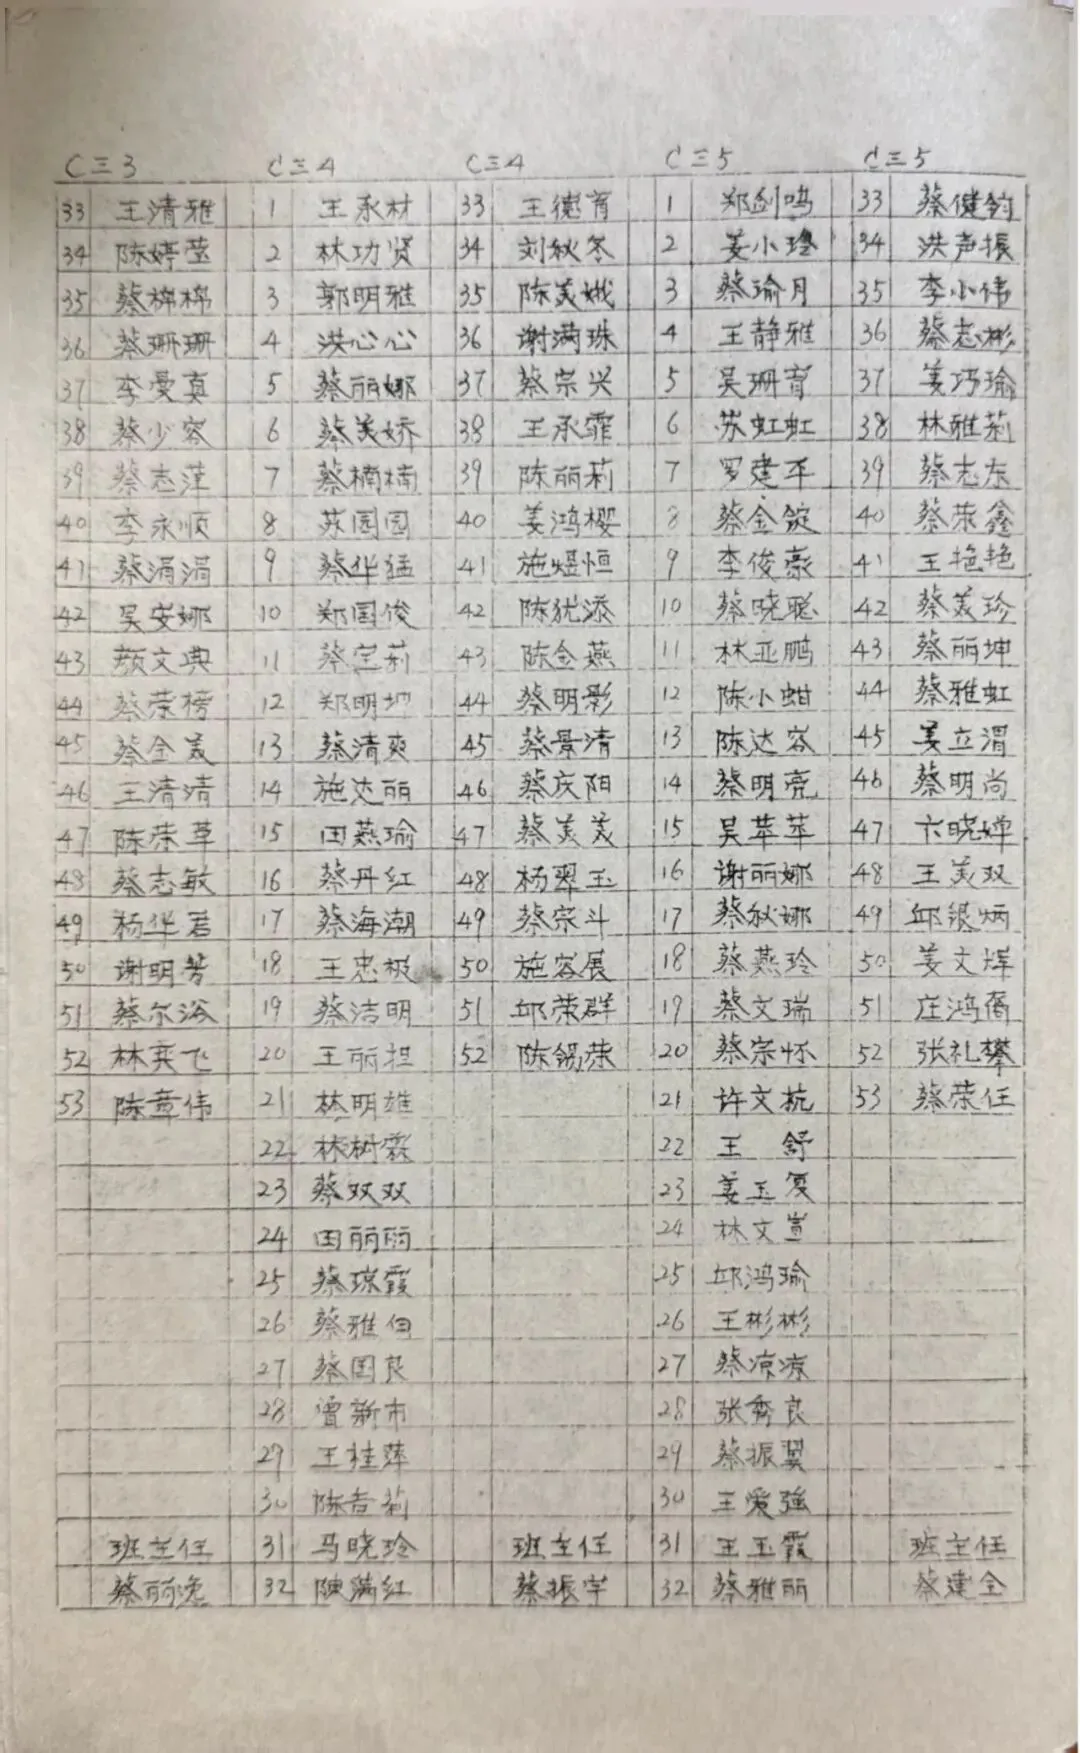 C三3 C三4 C三4 C三5 C三5
33 王清雅 1 王永材 33 王德育 1 郑剑鸣 33 蔡健钧
34 陈婷莹 2 林功贤 34 刘秋冬 2 姜小璒 34 洪声振
35 蔡棉棉 3 郭明雅 35 陈美娥 3 蔡瑜月 35 李小伟
36 蔡珊珊 4 洪心心 36 谢满珠 4 王静雅 36 蔡志彬
37 李曼真 5 蔡丽娜 37 蔡宗兴 5 吴珊育 37 姜巧瑜
38 蔡少容 6 蔡美娇 38 王承霏 6 苏虹虹 38 林雅莉
39 蔡志萍 7 蔡楠楠 39 陈丽莉 7 罗建平 39 蔡志东
40 李永顺 8 苏园园 40 姜鸿樱 8 蔡金锭 40 蔡荣鑫
41 蔡涓涓 9 蔡华猛 41 施煜恒 9 李俊豪 41 王艳艳
42 吴安娜 10 郑国俊 42 陈犹添 10 蔡晓聪 42 蔡美珍
43 颜文典 11 蔡宝莉 43 陈金燕 11 林亚鹏 43 蔡丽坤
44 蔡荣榜 12 郑明坤 44 蔡明影 12 陈小蚶 44 蔡雅虹
45 蔡金美 13 蔡清爽 45 蔡景清 13 陈达容 45 姜立渭
46 王清清 14 施达丽 46 蔡庆阳 14 蔡明亮 46 蔡明尚
47 陈荣草 15 田燕瑜 47 蔡美美 15 吴苹苹 47 卞晓婵
48 蔡志敏 16 蔡丹红 48 杨翠玉 16 谢丽娜 48 王美双
49 杨华君 17 蔡海潮 49 蔡宗斗 17 蔡秋娜 49 邱银炳
50 谢明芳 18 王忠极 50 施容展 18 蔡燕玲 50 姜文辉
51 蔡尔浴 19 蔡洁明 51 邱荣群 19 蔡文瑞 51 庄鸿裔
52 林奕飞 20 王丽担 52 陈锡荣 20 蔡宗怀 52 张礼攀
53 陈章伟 21 林明雄 21 许文杭 53 蔡荣任
22 林树霖 22 王 舒
23 蔡双双 23 姜玉复
24 田丽丽 24 林文萱
25 蔡琼霞 25 邱鸿瑜
26 蔡雅伯 26 王彬彬
27 蔡国良 27 蔡凉凉
28 曾新市 28 张秀良
29 王桂萍 29 蔡振翼
30 陈杏莉 30 王爱强
班主任 31 马晓玲 班主任 31 王玉霞 班主任
蔡丽逸 32 陈满红 蔡振宇 32 蔡雅丽 蔡建全